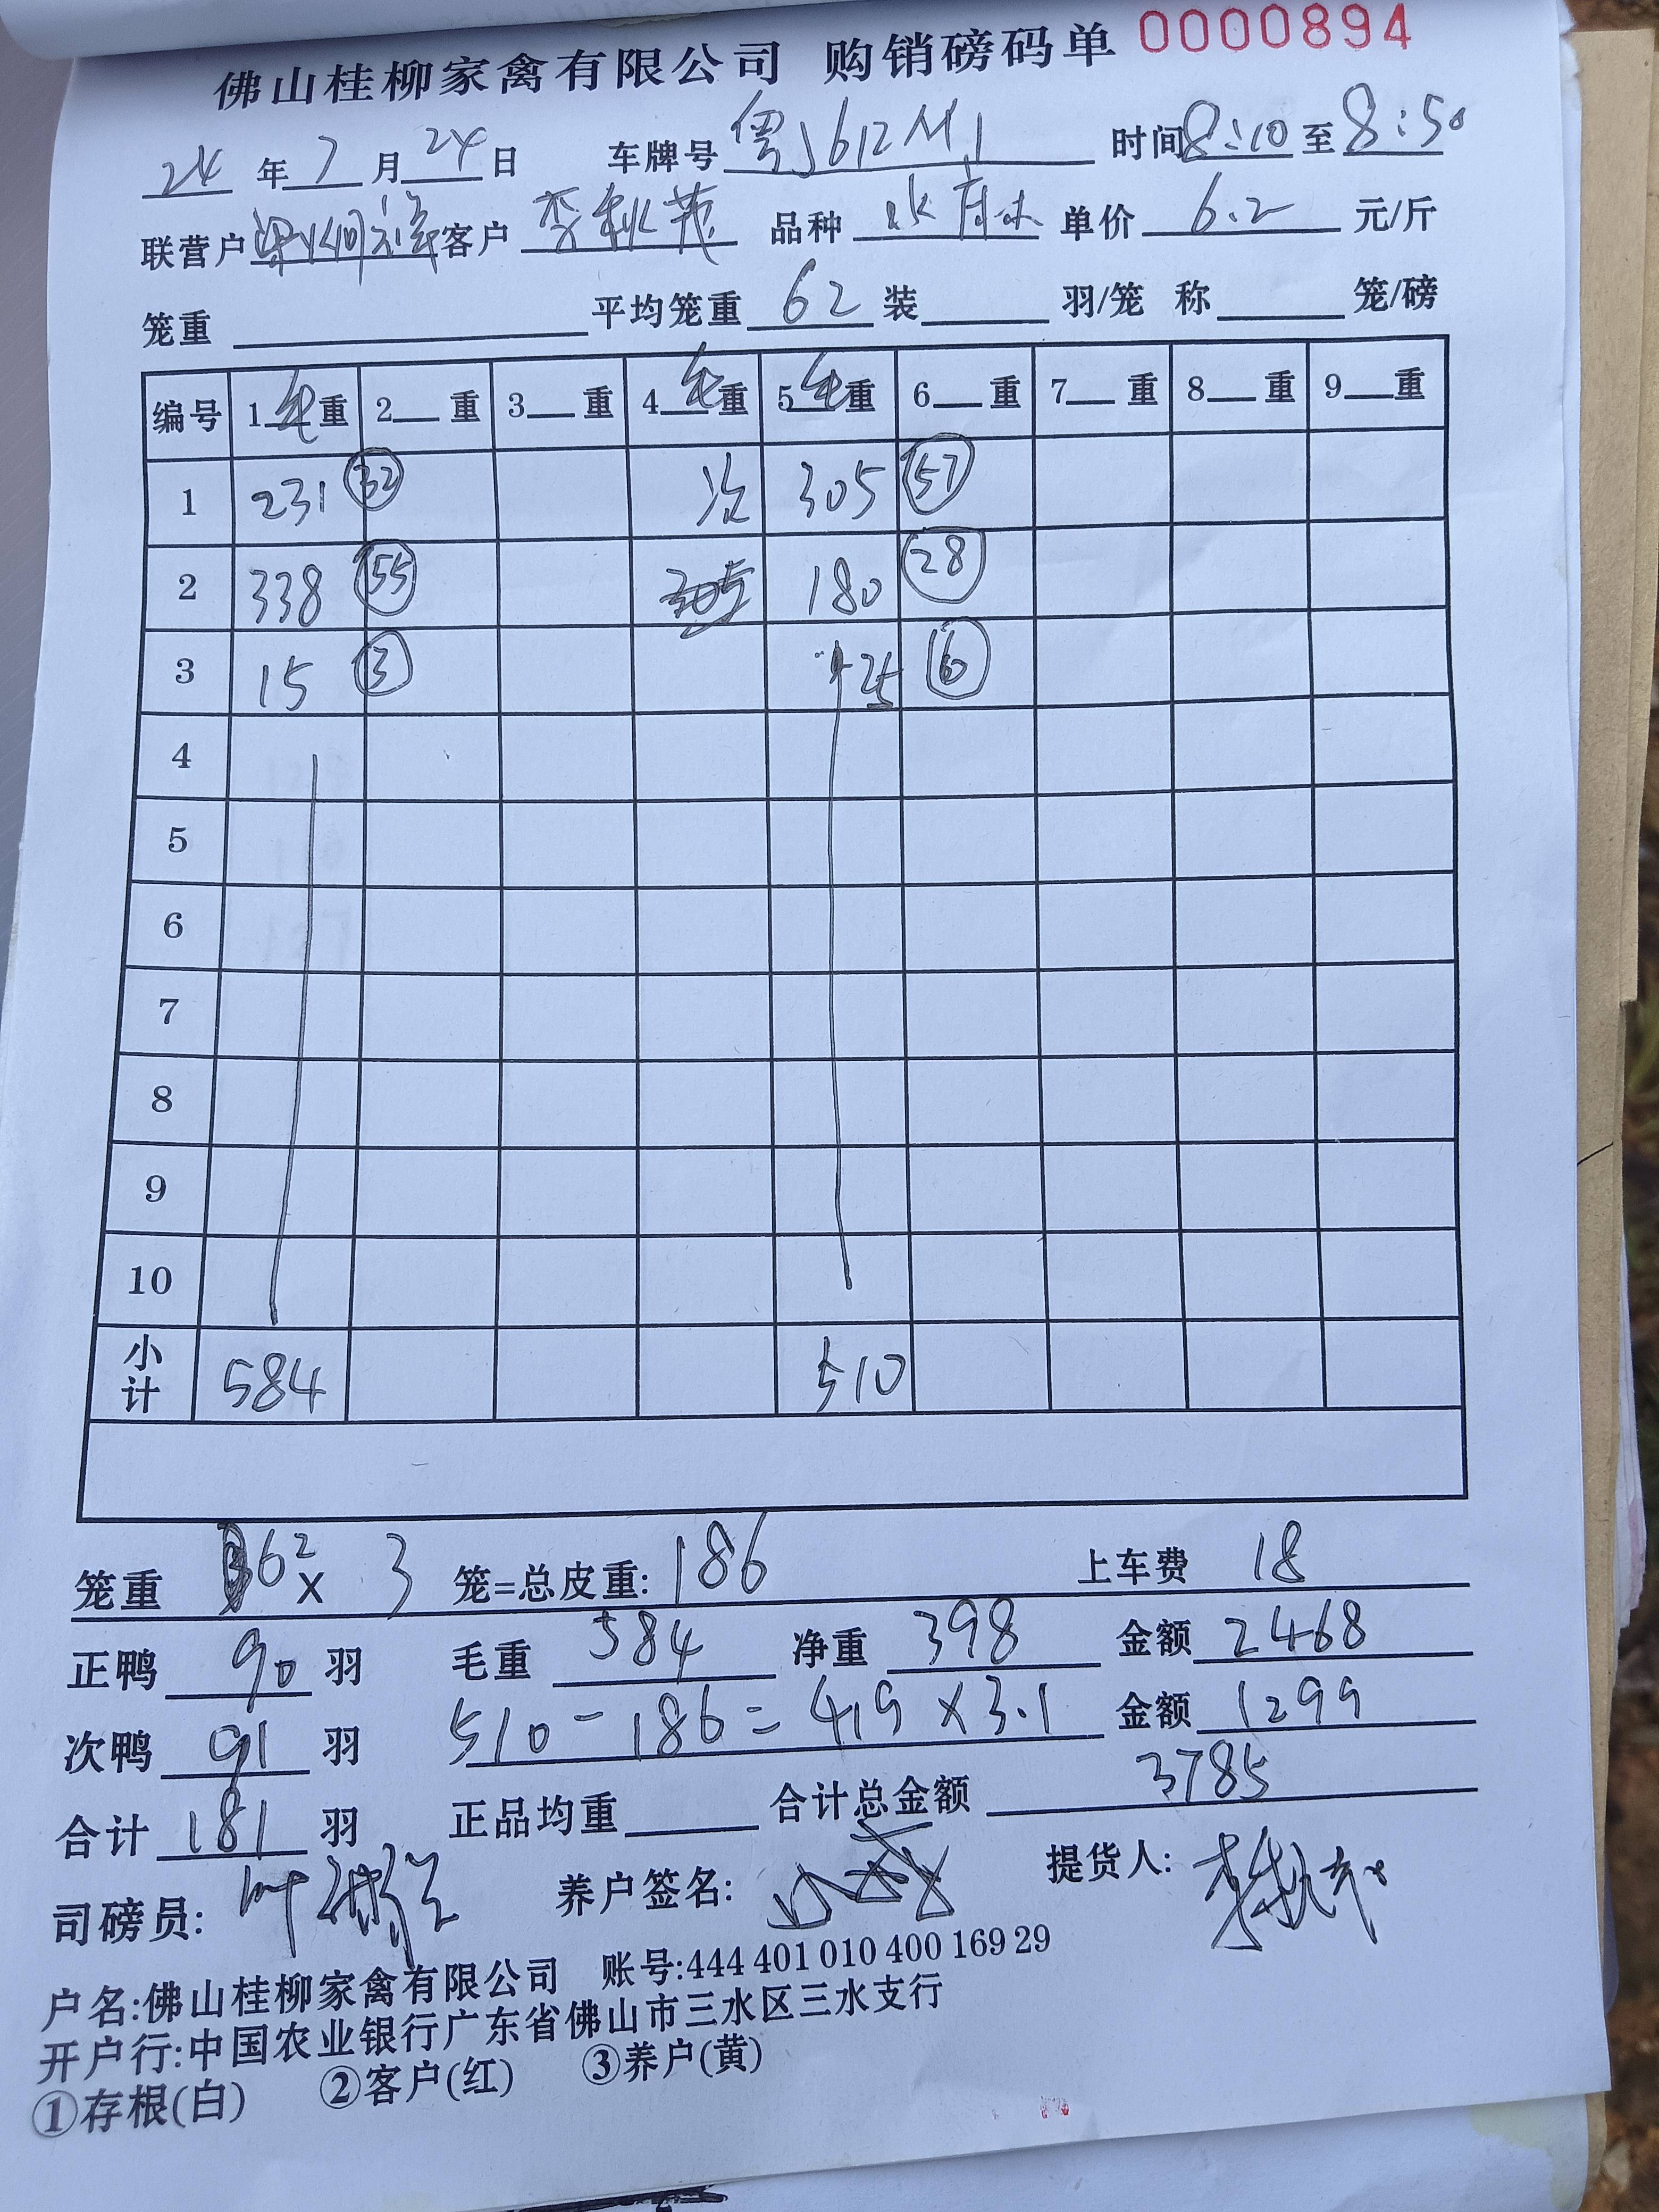 佛山桂柳家禽有限公司 购销磅码单 0000894
24 年 7 月 24 日 车牌号 粤J612M1 时间 8:10 至 8:50
联营户 客户 李秋茂 品种 单价 6.2 元/斤
笼重 平均笼重 62 装 羽/笼 称 笼/磅
编号 1 毛 重 2 重 3 重 4 毛 重 5 毛 重 6 重 7 重 8 重 9 重
1 231 32 次 305 57
2 338 55 180 28
3 15 3 25 6
4
5
6
7
8
9
10
小计 584 510
笼重 62 x 3 笼=总皮重: 186 上车费 18
正鸭 90 羽 毛重 584 净重 398 金额 2468
次鸭 91 羽 510 - 186 = 419 x 3.1 金额 1299
合计 181 羽 正品均重 合计总金额 3785
司磅员: 养户签名: 提货人: 李秋茂
户名:佛山桂柳家禽有限公司 账号:444 401 010 400 169 29
开户行:中国农业银行广东省佛山市三水区三水支行
①存根(白) ②客户(红) ③养户(黄)